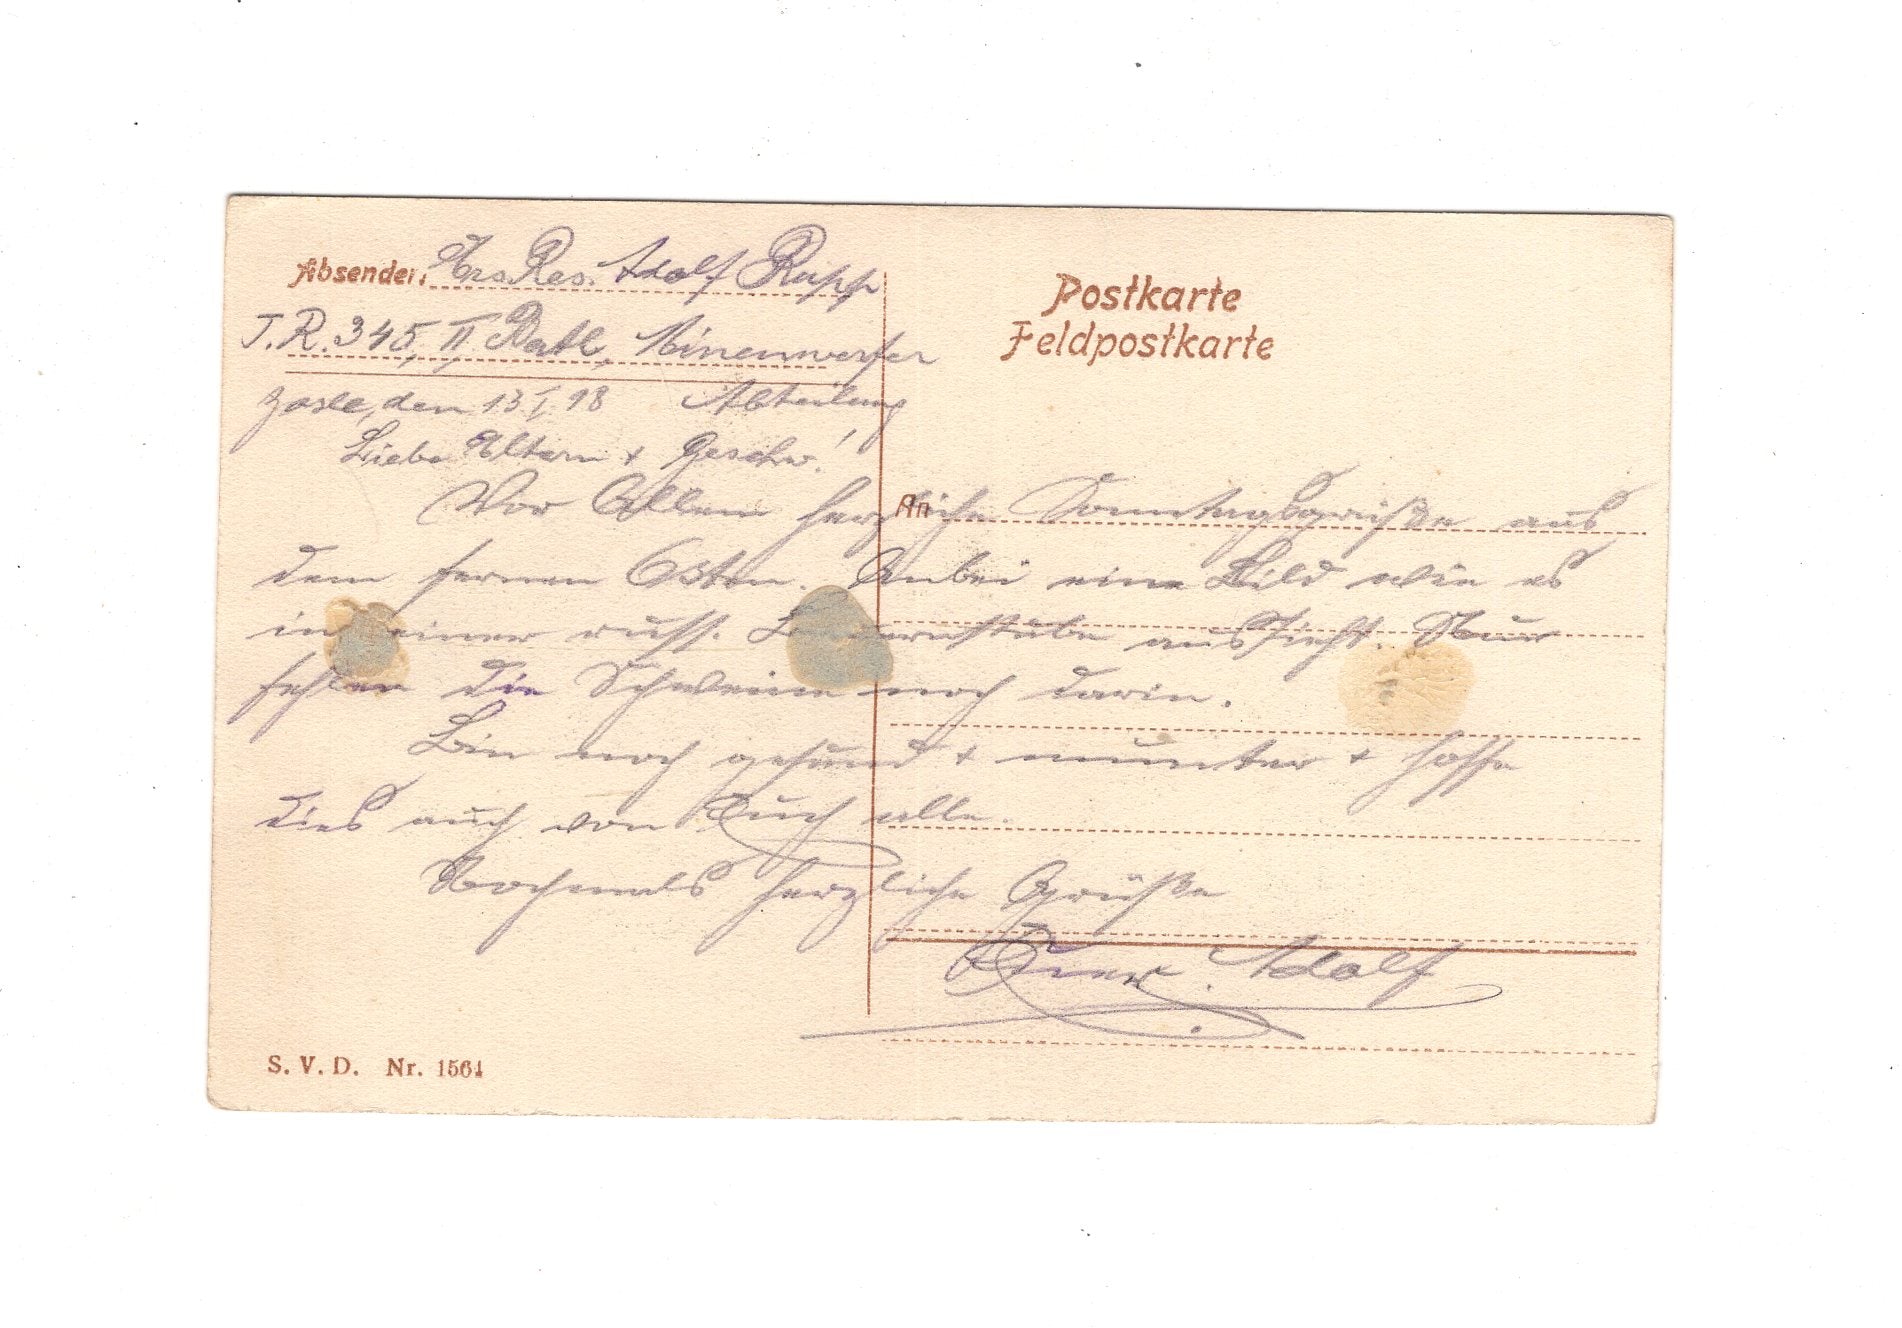 Absender: Ers. Res. Adolf Rupp
J.R. 345, II Batl, Minenwerfer
den 13/I. 18 Abteilung
Postkarte
Feldpostkarte
Liebe Eltern + Geschw.!
An
Vor Allem herzliche Sonntagsgrüße aus
dem fernen Osten. Anbei eine Bild wie es
in einer russ. Bauernstube aussieht. Nur
fehlen die Schweine noch darin.
Bin noch gesund + munter + hoffe
dies auch von Euch alle.
Nochmals herzliche Grüße
Euer Adolf
S. V. D. Nr. 1564